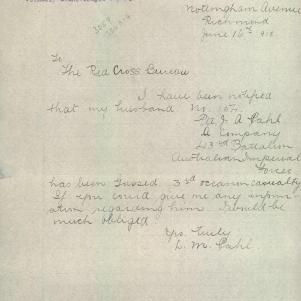 Nottingham Avenue
Richmond
June 16th 918.
To
The Red Cross Bureau
I have been notified
that my husband No.
Pte J. A. Cahl
A Company
43rd Battalion
Australian Imperial
Forces
has been Gassed 3rd occasion casualty
If you could give me any inform
ation regarding him I would be
much obliged.
Yrs. Truly
L. M. Cahl.